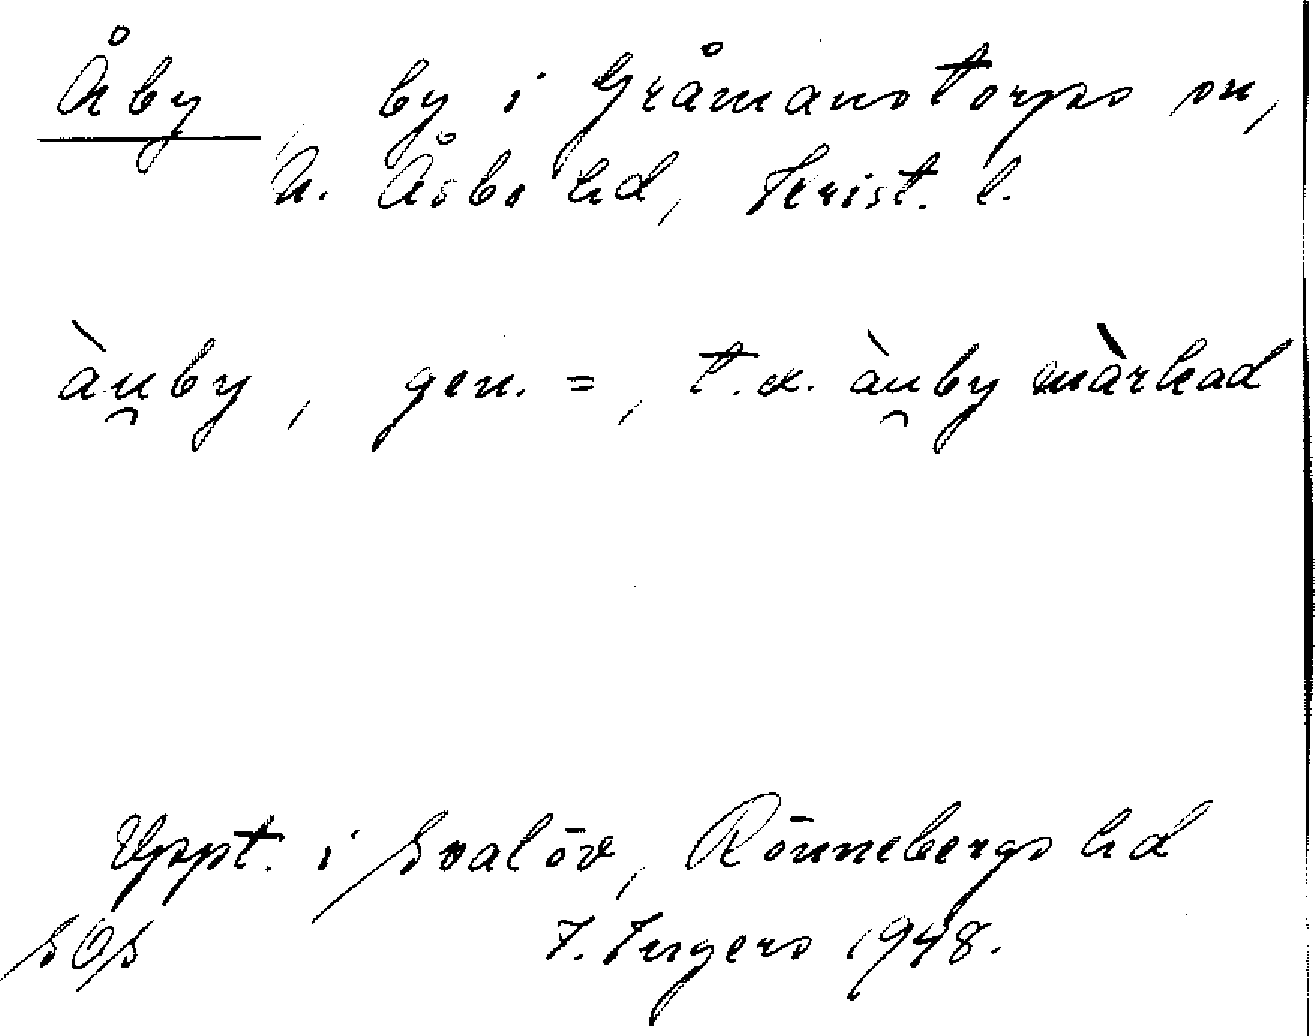 Åby, by i Gråmanstorps sn,
N. Åsbo hd, Krist. l.
àu̯by, gen. =, t.ex. àu̯by màrkad
Uppt. i Svalöv, Rönnebergs hd
SOS I. Ingers 1948.